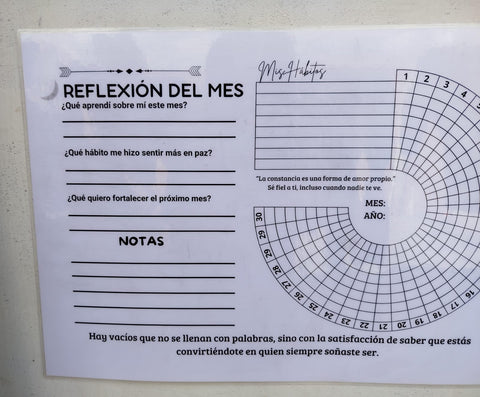 REFLEXIÓN DEL MES
¿Qué aprendi sobre mí este mes?
¿Qué hábito me hizo sentir más en paz?
¿Qué quiero fortalecer el próximo mes?
NOTAS
Mis Hábitos
1 2 3 4
"La constancia es una forma de amor propio."
Sé fiel a ti, incluso cuando nadie te ve.
MES:
AÑO:
30 29 28 27 26 25 24 23 22 21 20 19 18 17 16
Hay vacíos que no se llenan con palabras, sino con la satisfacción de saber que estás
convirtiéndote en quien siempre soñaste ser.